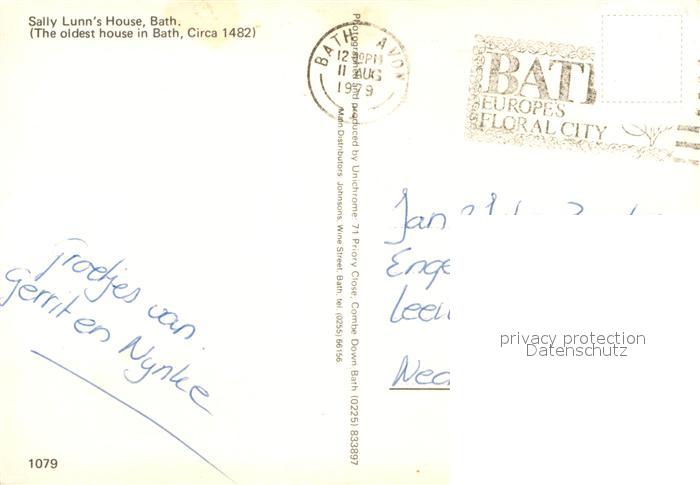 Sally Lunn's House, Bath.
(The oldest house in Bath, Circa 1482)
BATH AVON
11 AUG
1979
BAT
EUROPES
FLORAL CITY
Photographed and produced by Unichrome: 71 Priory Close, Combe Down Bath (0225) 833897
Main Distributors Johnsons, Wine Street, Bath, tel. (0255) 66156.
Jan
Enge
Leeu
Ned
Groetjes van
Gerrit en Nynke
privacy protection
Datenschutz
1079